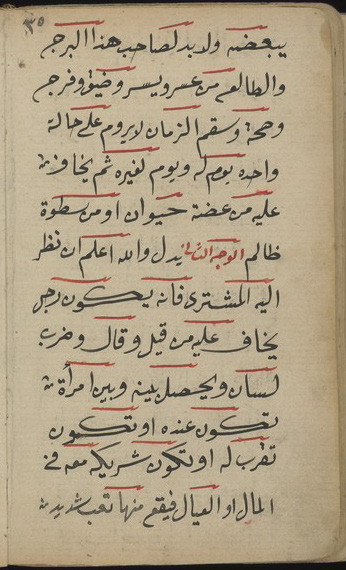 ٣٥
يبغضه ولا بد لصاحب هذا البرج
والطالع من عسر ويسر وضيق وفرج
وصحة وسقم الزمان لا يروم على حالة
واحده يوم له ويوم لغيره ثم يخاف
عليه من عضة حيوان او من سطوة
ظالم الوجه الثاني يدل والله اعلم ان نظر
اليه المشترى فانه يكون رجل
يخاف عليه من قيل وقال وضرب
لسان ويحصل بينه وبين امرأة
تكون عنده او تكون
تقرب له او تكون شريكه معه في
المال او العيال فيقع منها تعب شديد